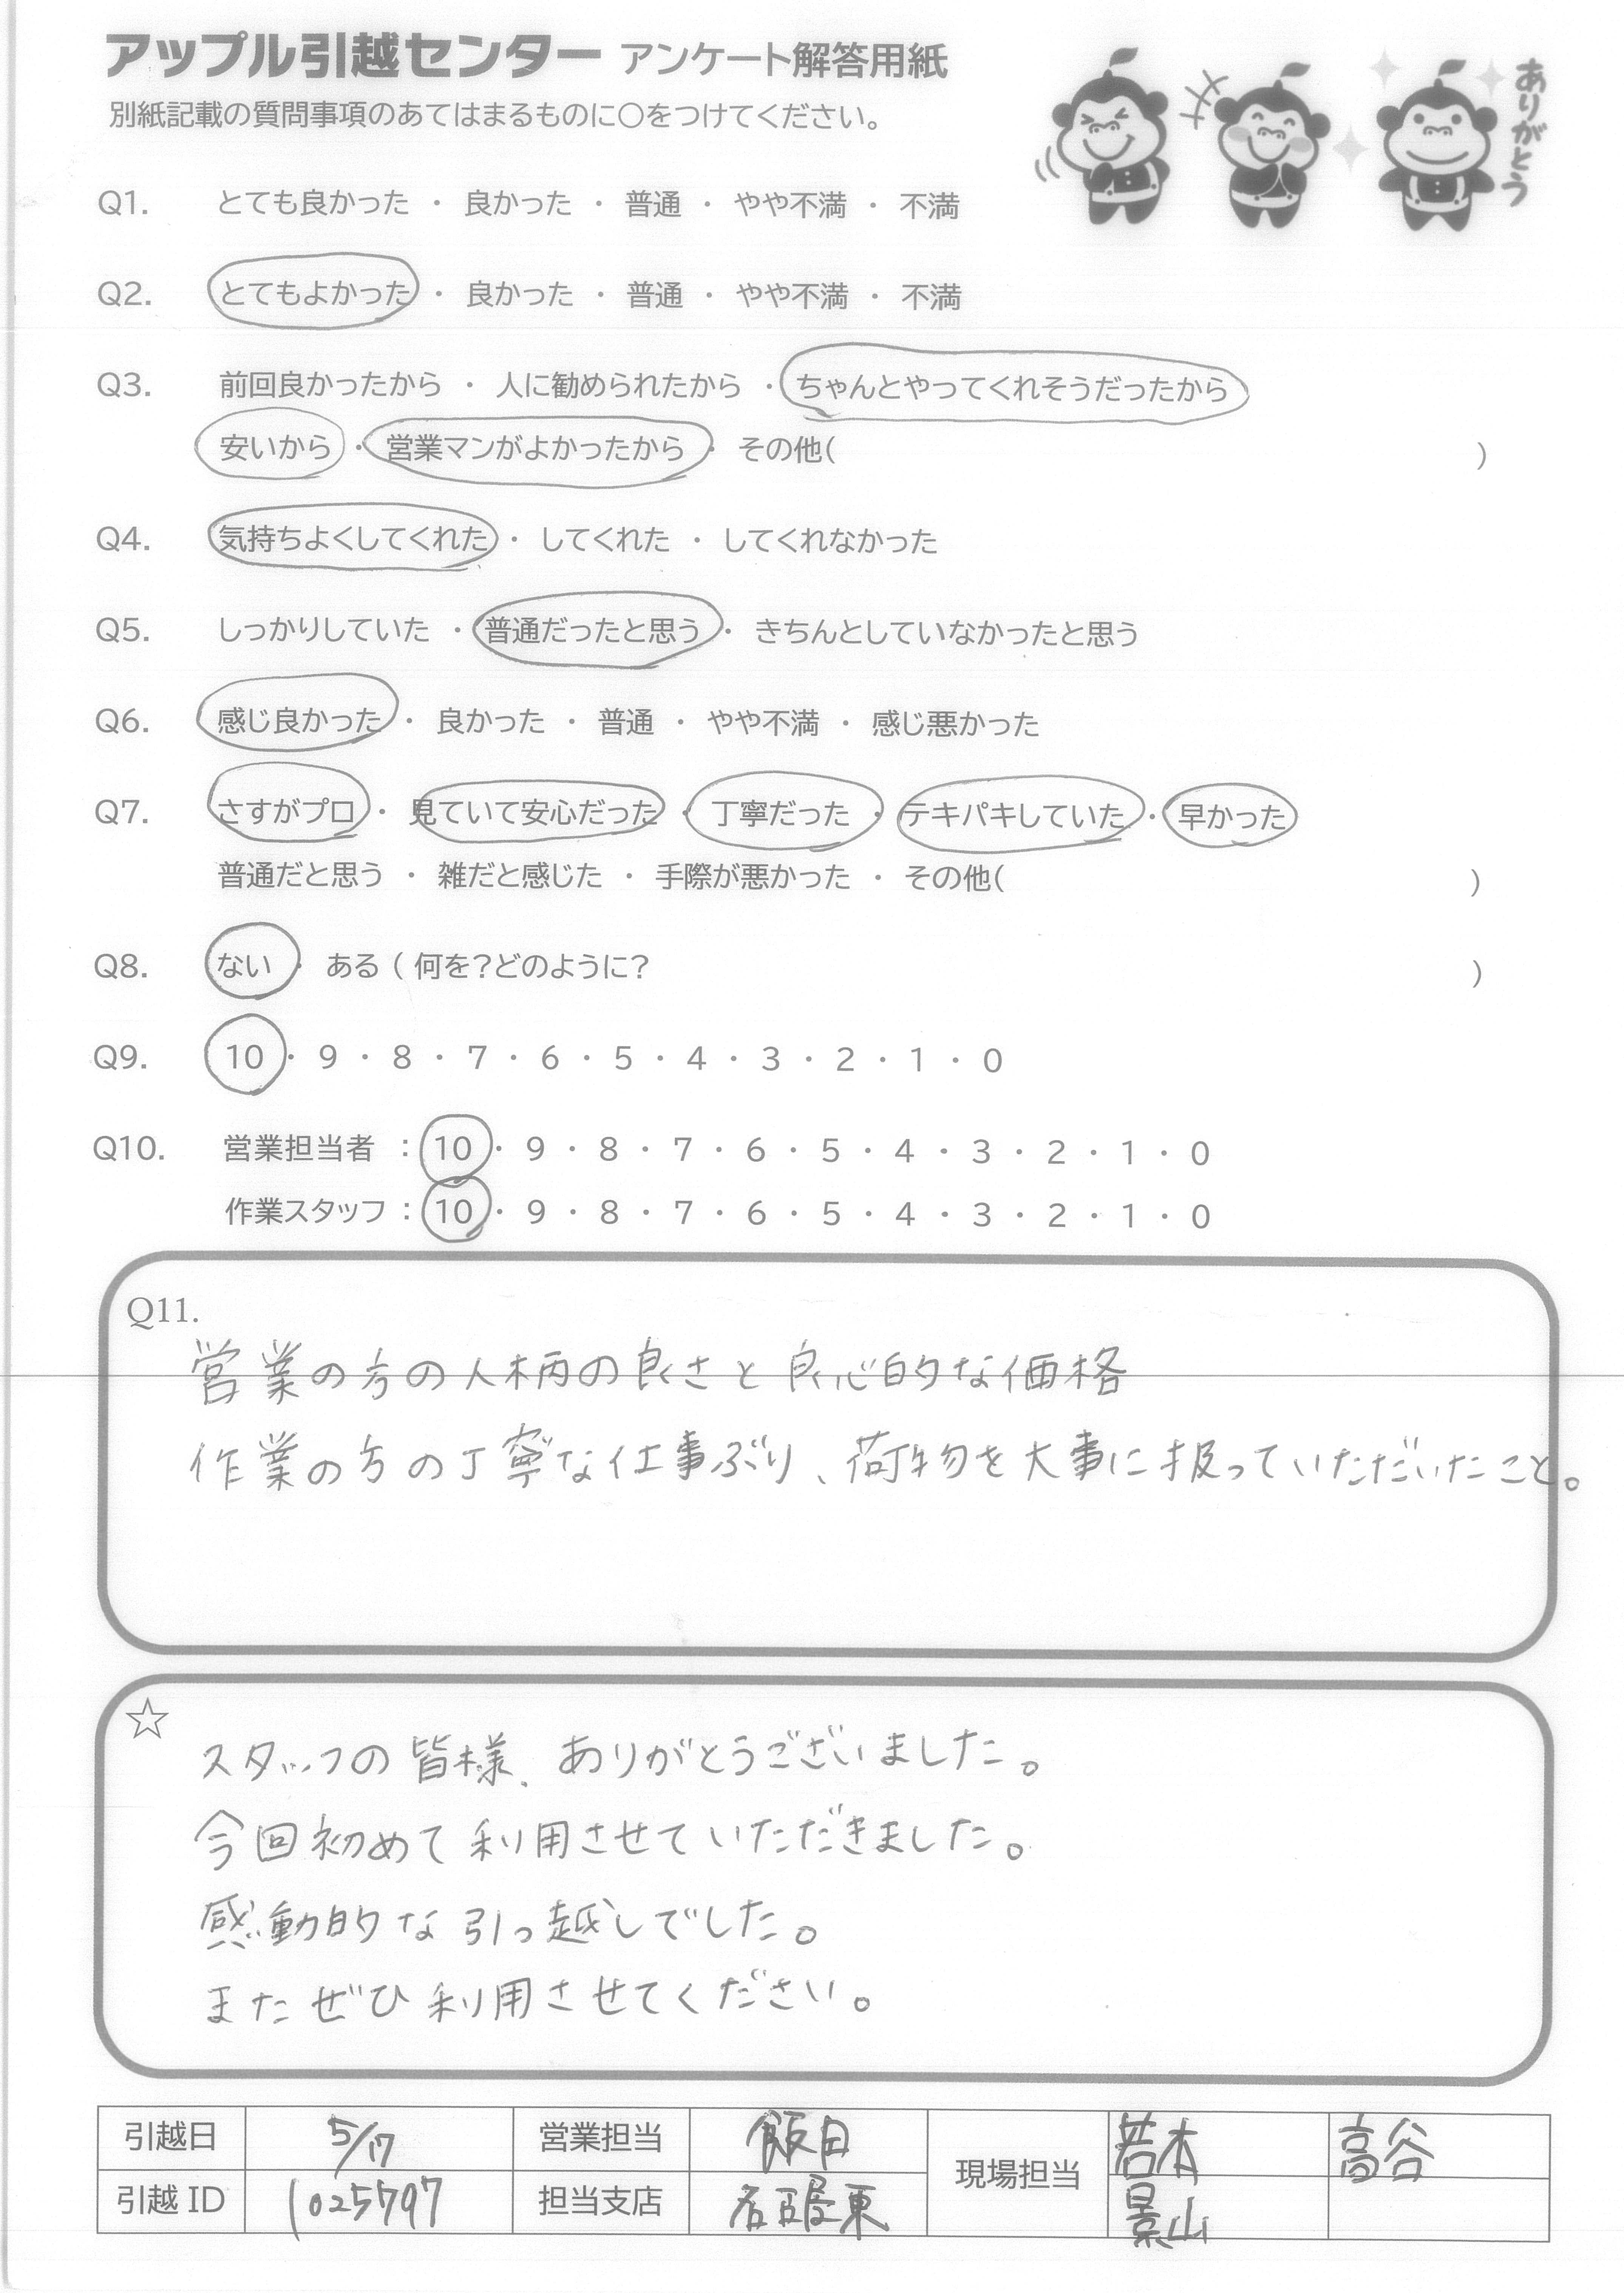 アップル引越センター アンケート解答用紙
別紙記載の質問事項のあてはまるものに○をつけてください。
ありがとう
Q1. とても良かった ・ 良かった ・ 普通 ・ やや不満 ・ 不満
Q2. とてもよかった ・ 良かった ・ 普通 ・ やや不満 ・ 不満
Q3. 前回良かったから ・ 人に勧められたから ・ ちゃんとやってくれそうだったから
安いから ・ 営業マンがよかったから ・ その他( )
Q4. 気持ちよくしてくれた ・ してくれた ・ してくれなかった
Q5. しっかりしていた ・ 普通だったと思う ・ きちんとしていなかったと思う
Q6. 感じ良かった ・ 良かった ・ 普通 ・ やや不満 ・ 感じ悪かった
Q7. さすがプロ ・ 見ていて安心だった ・ 丁寧だった ・ テキパキしていた ・ 早かった
普通だと思う ・ 雑だと感じた ・ 手際が悪かった ・ その他( )
Q8. ない ・ ある ( 何を?どのように? )
Q9. 10 ・ 9 ・ 8 ・ 7 ・ 6 ・ 5 ・ 4 ・ 3 ・ 2 ・ 1 ・ 0
Q10. 営業担当者 : 10 ・ 9 ・ 8 ・ 7 ・ 6 ・ 5 ・ 4 ・ 3 ・ 2 ・ 1 ・ 0
作業スタッフ : 10 ・ 9 ・ 8 ・ 7 ・ 6 ・ 5 ・ 4 ・ 3 ・ 2 ・ 1 ・ 0
Q11.
営業の方の人柄の良さと良心的な価格
作業の方の丁寧な仕事ぶり、荷物を大事に扱っていただいたこと。
☆
スタッフの皆様、ありがとうございました。
今回初めて利用させていただきました。
感動的な引っ越しでした。
またぜひ利用させてください。
引越日 5/17 営業担当 飯田 現場担当 若本 高谷
引越ID 1025797 担当支店 名古屋東 景山